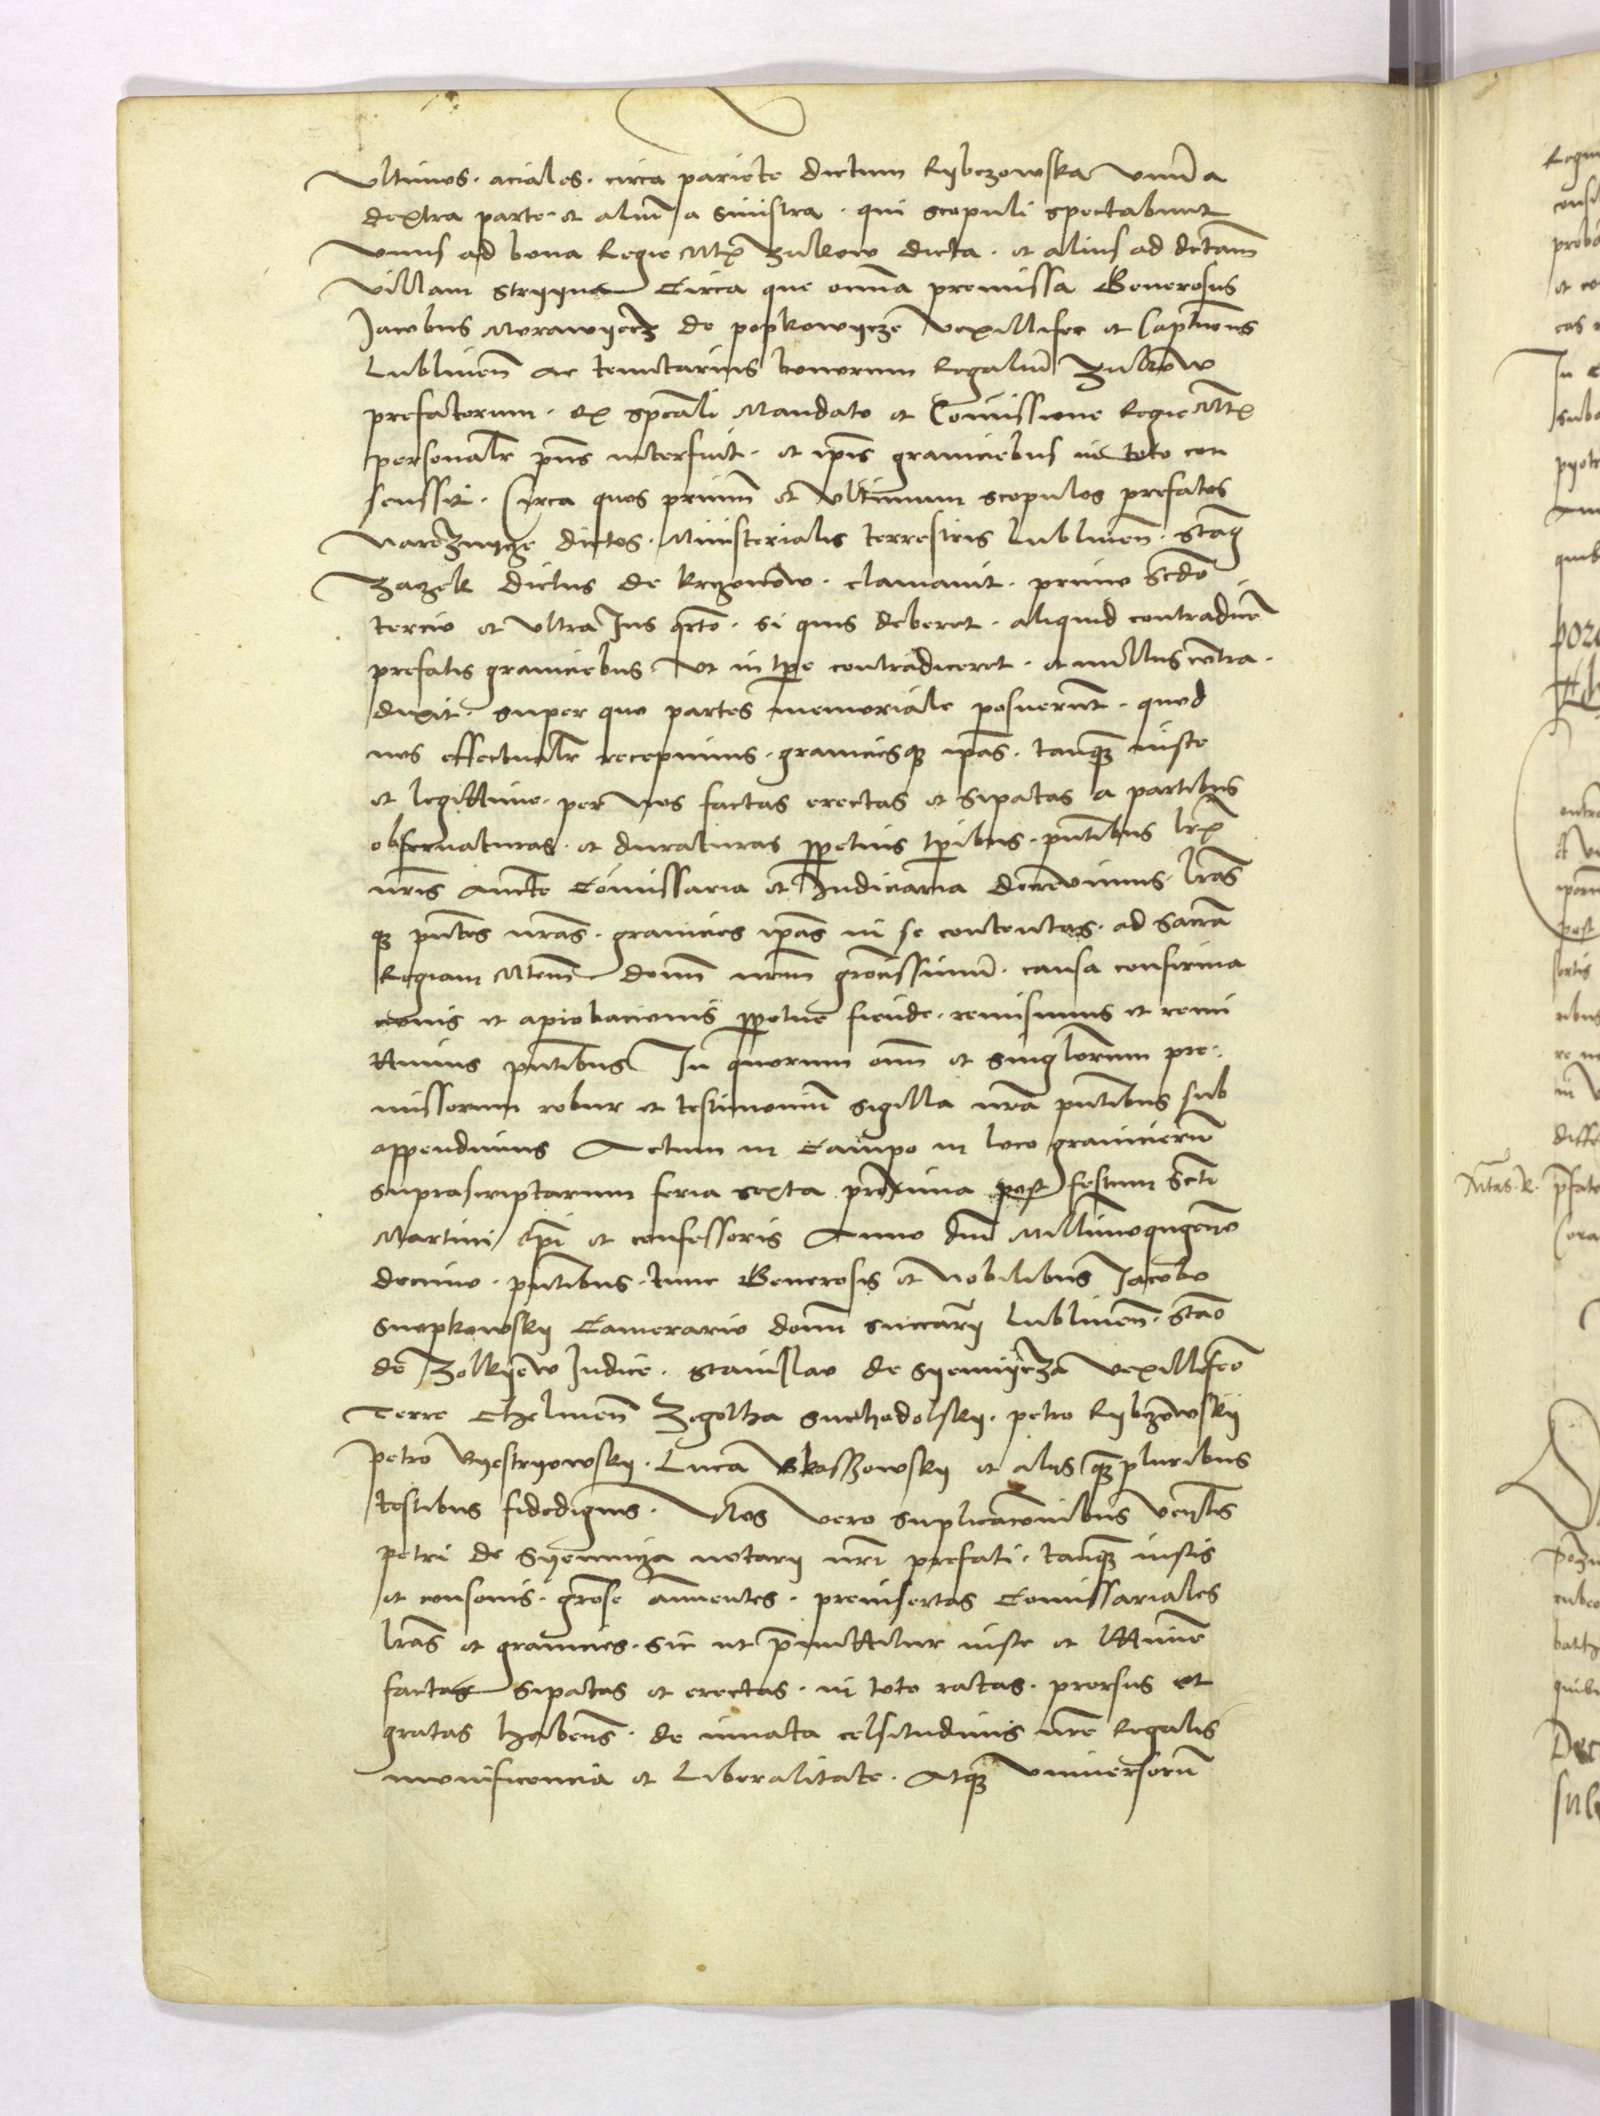 Ultimos. aciales. circa pariete dictum Rijbczowska Unu a
dextra parte. et aliu a sinistra. qui scopuli spectabunt
Unus ad bona Regie Mtis Zulkow dicta. et alius ad dctam
Villam Stryyna Circa que omnia premissa Generosus
Jacobus Morawijecz de popkowijcze Vexillifer et Captneus
Lublinen ac tenutarius bonorum Regaliu Zulkow
prefatorum. ex spcali Mandato et Comissione Regie Mtis
personalr pns interfuit. et ipis graniciebus in toto con
senssit. Circa quos primu et Ultimum scopulos prefatos
Narozniycze dictos. Ministerialis terrestris Lublinen.
Zazek dictus de krzczonow. clamavit. primo scdo
tercio et Ultra Jus qrto. si quis deberet. aliquid contradicere
prefatis graniciebus. Ut in tpe contradiceret. et nullus contra.
dixit. super quo partes memoriale posuerunt. quod
nos effectualr recepimus. graniciesqz ipas. tanqz iuste
et legittime. per Nos factas erectas et sipatas a partibus
observaturas. et duraturas ppetuis tpibus. pntibus lris
nris aucte Comissaria et Judiciaria decrevimus. lras
qz pntes nras. granicies ipas in se contentas. ad Sacra
Regiam Mtem dnum nrum grosissimu. causa confirma
cionis et aprobacionis ppetue fiende. remisimus et remi
ttimus pntibus In quorum oim et singlorum pre.
missorum robur et testimoniu sigilla nra pntibus sub
appendimus Actum in Campo in loco granicieru
suprascriptarum feria sexta proxima post festum Scti
Martini Epi et confessoris Anno dni Millimoqngeno
decimo. pntibus. tunc Generosis et Nobilibus Jacobo
Snopkowskij Camerario domi succarij Lublinen. Stao
de Zolkijew Judice. Stanislao de Sijennijcza Vexillifero
Terre Chelmen Zegotha Suchodolskij. petro Rijbczowskij
petro Bijestrijowskij. Luca et alijs qz pluribus
testibus fidedignis. Nos Vero suplicacionibus Venlis
petri de Sijennicza notarij nri prefati. tanqz iustis
et consonis. grose annuentes. preinsertas Comissariales
lras et granicies. sic ut pmittitur iuste et lttime
factas sipatas et erectas. in toto ratas. prorsus et
gratas habens. de innata celsitudinis nre Regalis
munificencia et Liberalitate. Atqz Universoru